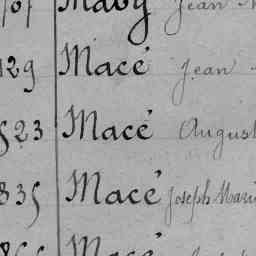 Maby Jean
129 Macé Jean
523 Macé August
835 Macé Joseph Marie
Macé